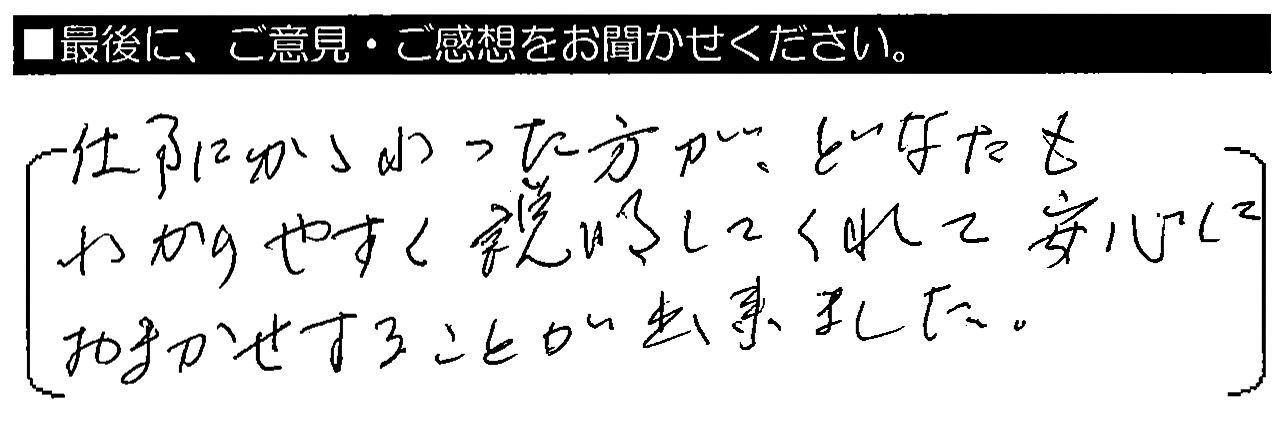 ■最後に、ご意見・ご感想をお聞かせください。
仕事にかゝわった方が、どなたも
わかりやすく説明してくれて安心して
おまかせすることが出来ました。